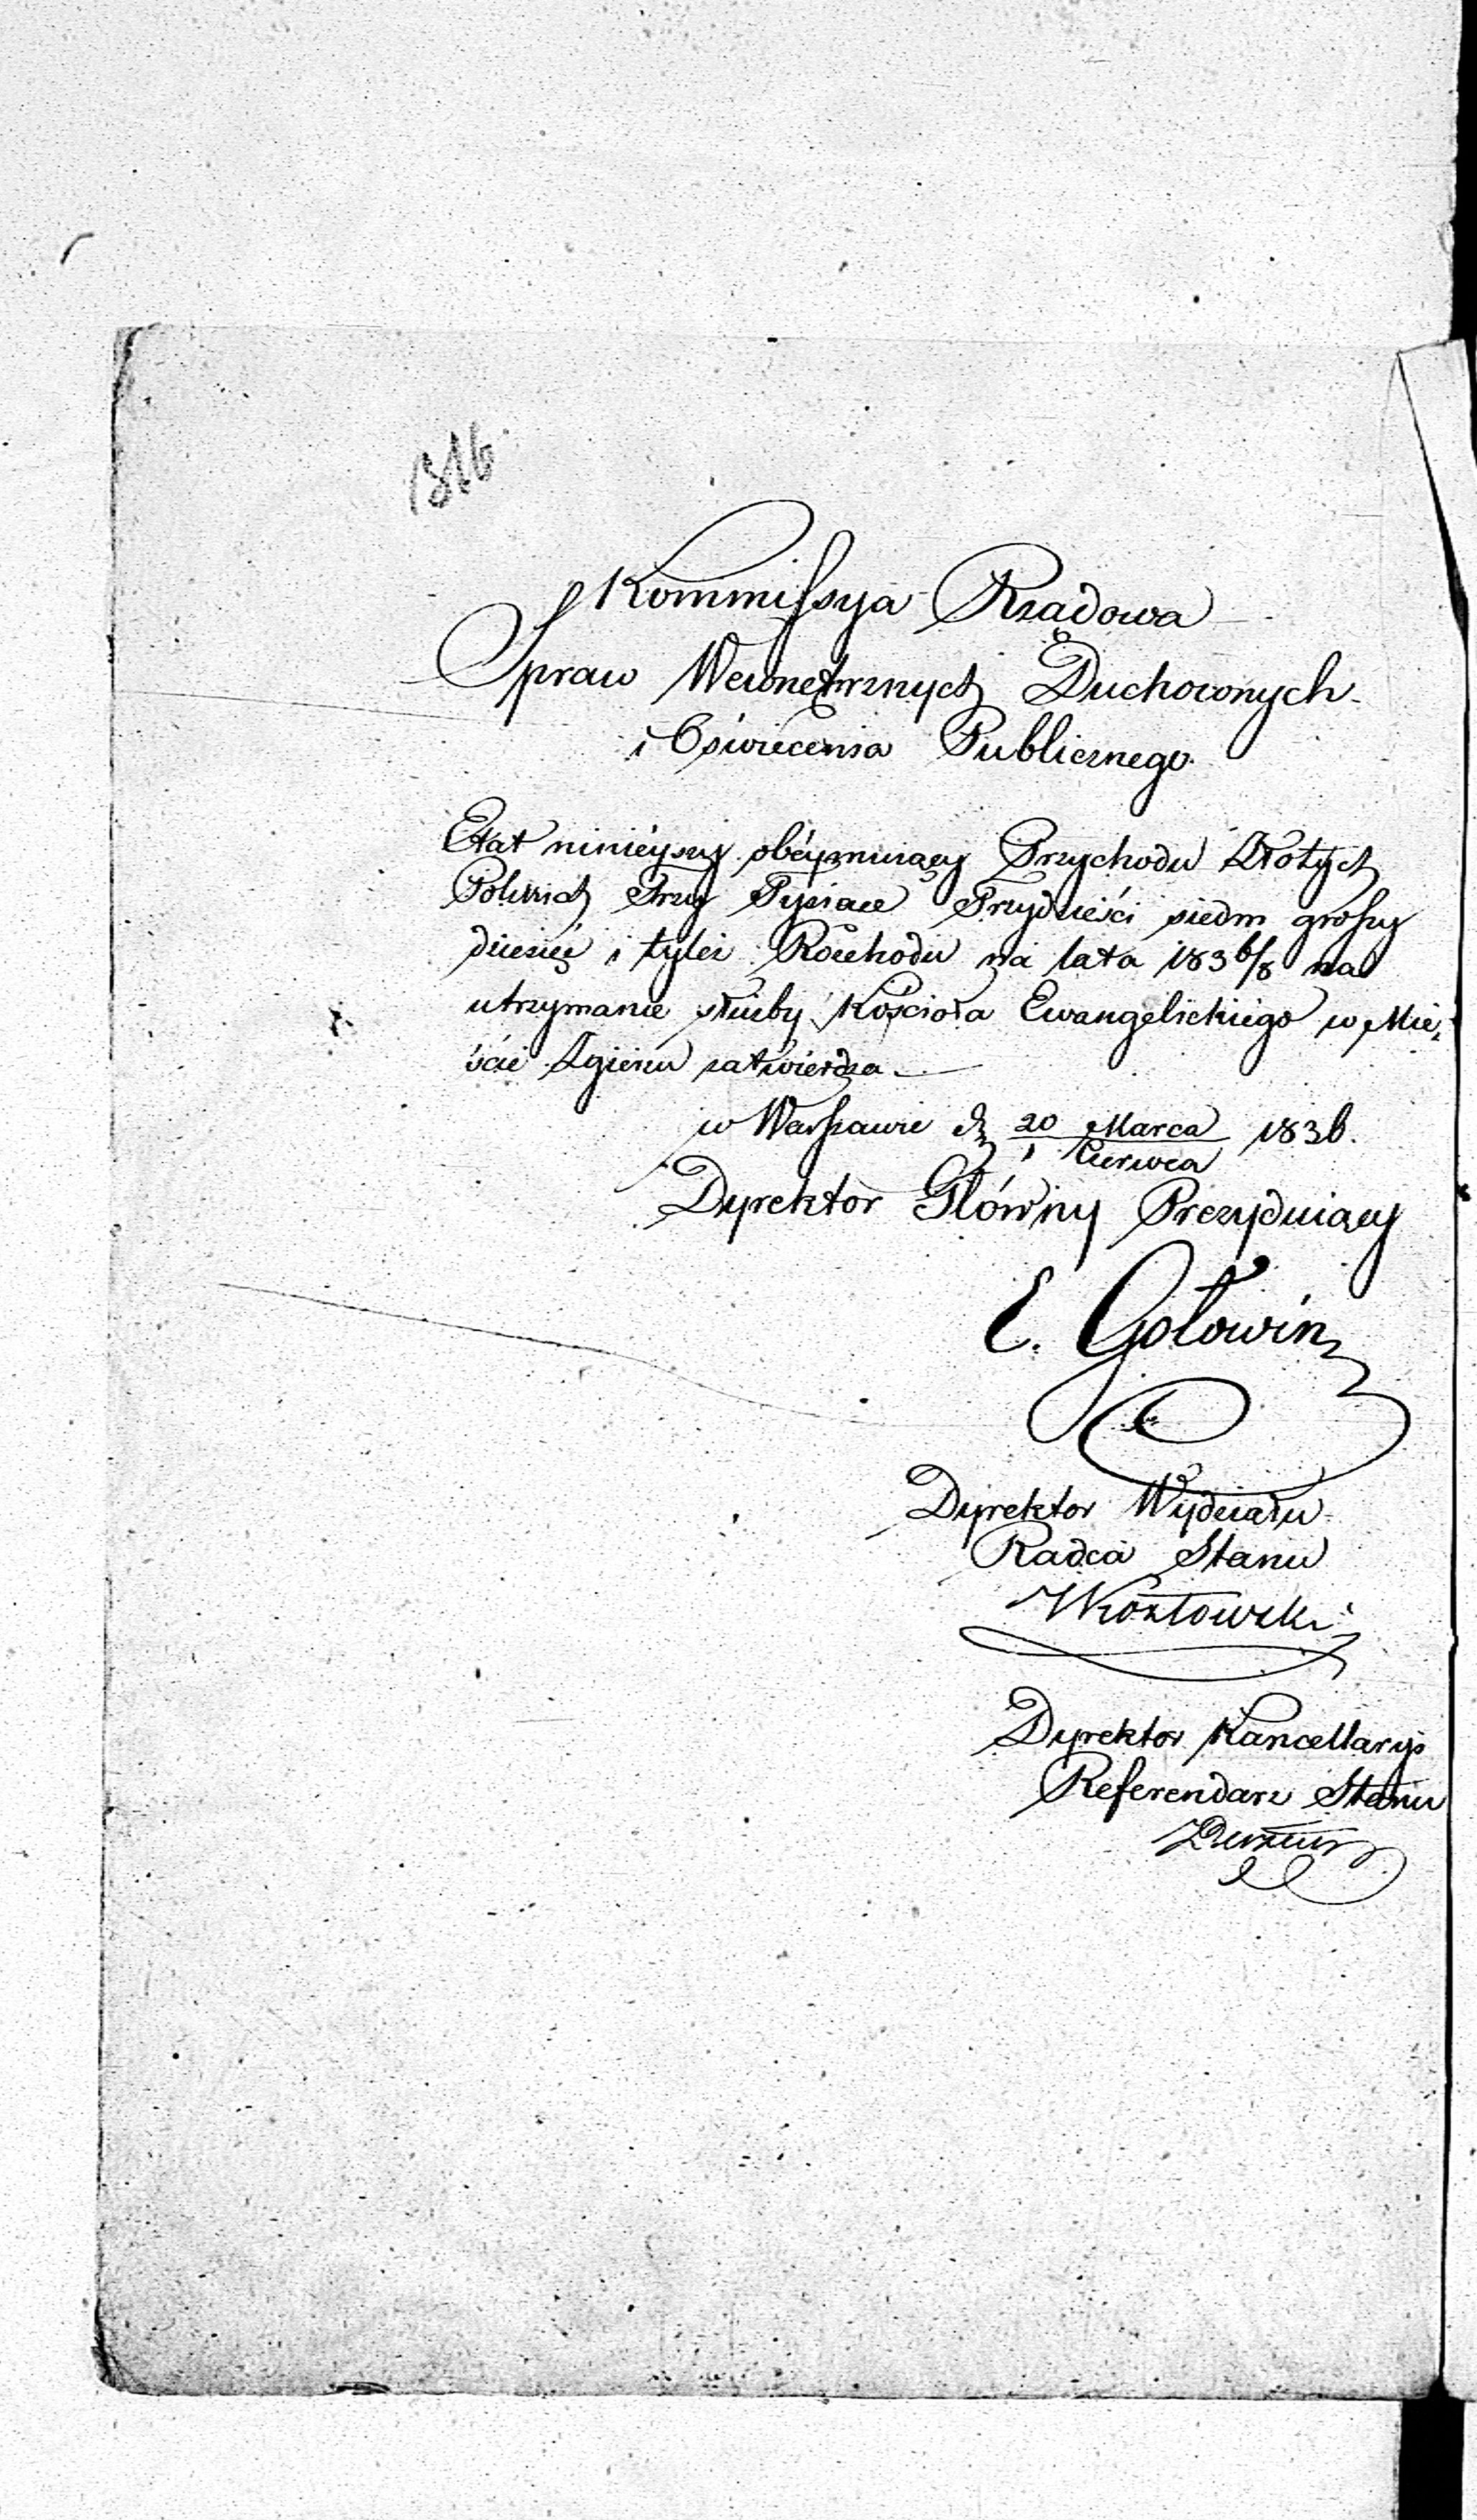 1316
Kommissya Rządowa
Spraw Wewnętrznych Duchownych
i Oświecenia Publicznego
Etat ninieyszy obéymuiący Przychodu Złotych
Polskich Trzy Tysiące Trzydzieści siedm groszy
dziesięć i tyleż Rozchodu na lata 1836/8 na
utrzymanie służby Kościoła Ewangelickiego w Mie-
ście Zgierzu zatwierdza.
w Warszawie d. 20 Marca / 1 Czerwca 1836.
Dyrektor Główny Prezyduiący
E. Gołowin
Dyrektor Wydziału
Radca Stanu
Kozłowski
Dyrektor Kancellaryi
Referendarz Stanu